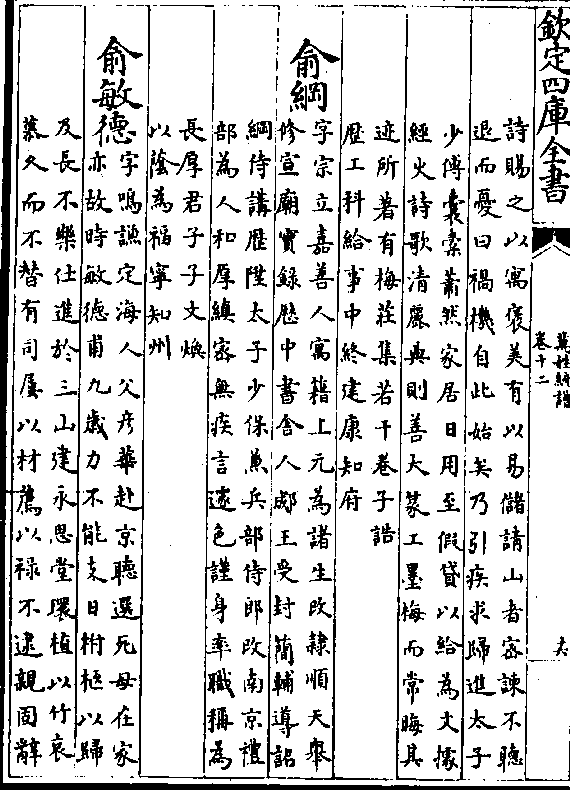 欽定四庫全書
萬姓統譜
卷十二
詩賜之以寓褒美有以易儲請山者密諫不聽
退而憂曰禍機自此始矣乃引疾求歸進太子
少傅囊槖蕭然家居日用至假貸以給為文據
經史詩歌清麗典則善大篆工墨梅而常晦其
迹所著有梅莊集若干巻子誥
歴工科給事中終建康知府
俞綱
字宗立嘉善人寓籍上元為諸生改隷順天舉
修宣廟實録歴中書舍人郕王受封簡輔導詔
綱侍講歴陞太子少保兼兵部侍郎改南京禮
部為人和厚縝密無疾言遽色謹身率職稱為
長厚君子子文煥
以蔭為福寧知州
俞敏德
字鳴謙定海人父彦華赴京聽選死母在家
亦故時敏德甫九歳力不能支日柎柩以歸
及長不樂仕進於三山建永思堂環植以竹哀
慕久而不替有司屢以材薦以禄不逮親固辭